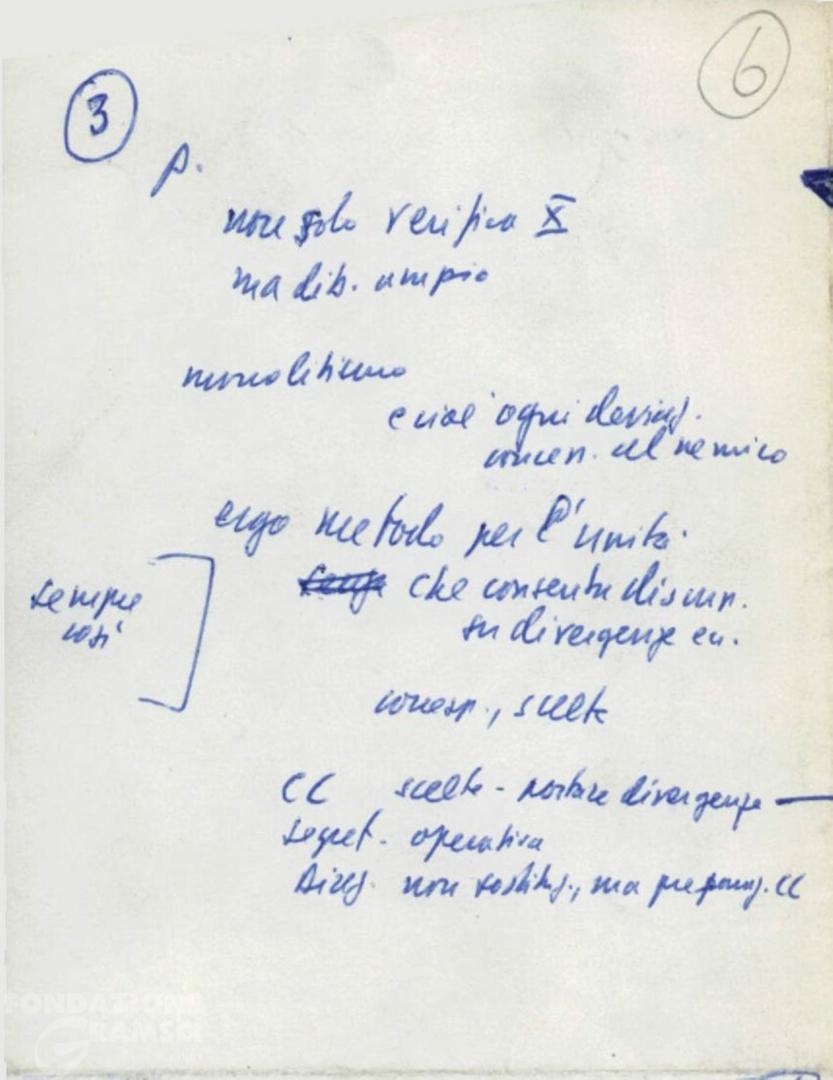 3
6
p.
non solo verifica X
ma dib. ampio
monolitismo
cioè ogni deviaz.
concess. al nemico
ergo metodo per l'unità
che consenta discuss.
su divergenze ecc.
sempre
così
scelte
CC scelte - portare divergenze —
segret. operativa
Direz. non sostituz., ma preparaz. CC
FONDAZIONE
GRAMSCI